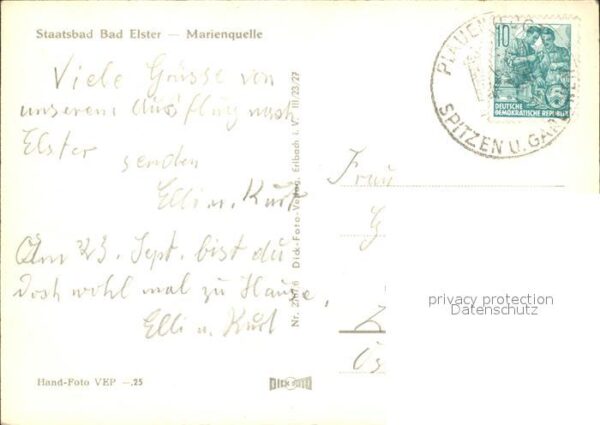 Staatsbad Bad Elster — Marienquelle
Viele Grüsse von
unserem Ausflug nach
Elster senden
Elli u. Kurt
Am 23. Sept. bist du
doch wohl mal zu Hause,
Elli u. Kurt
Hand-Foto VEP —.25
Dick-Foto-Verlag, Erlbach i. V. III/23/27
DICK FOTO
10
DEUTSCHE
DEMOKRATISCHE REPUBLIK
PLAUEN
SPITZEN U. GARDINEN
Frau
G
privacy protection
Datenschutz